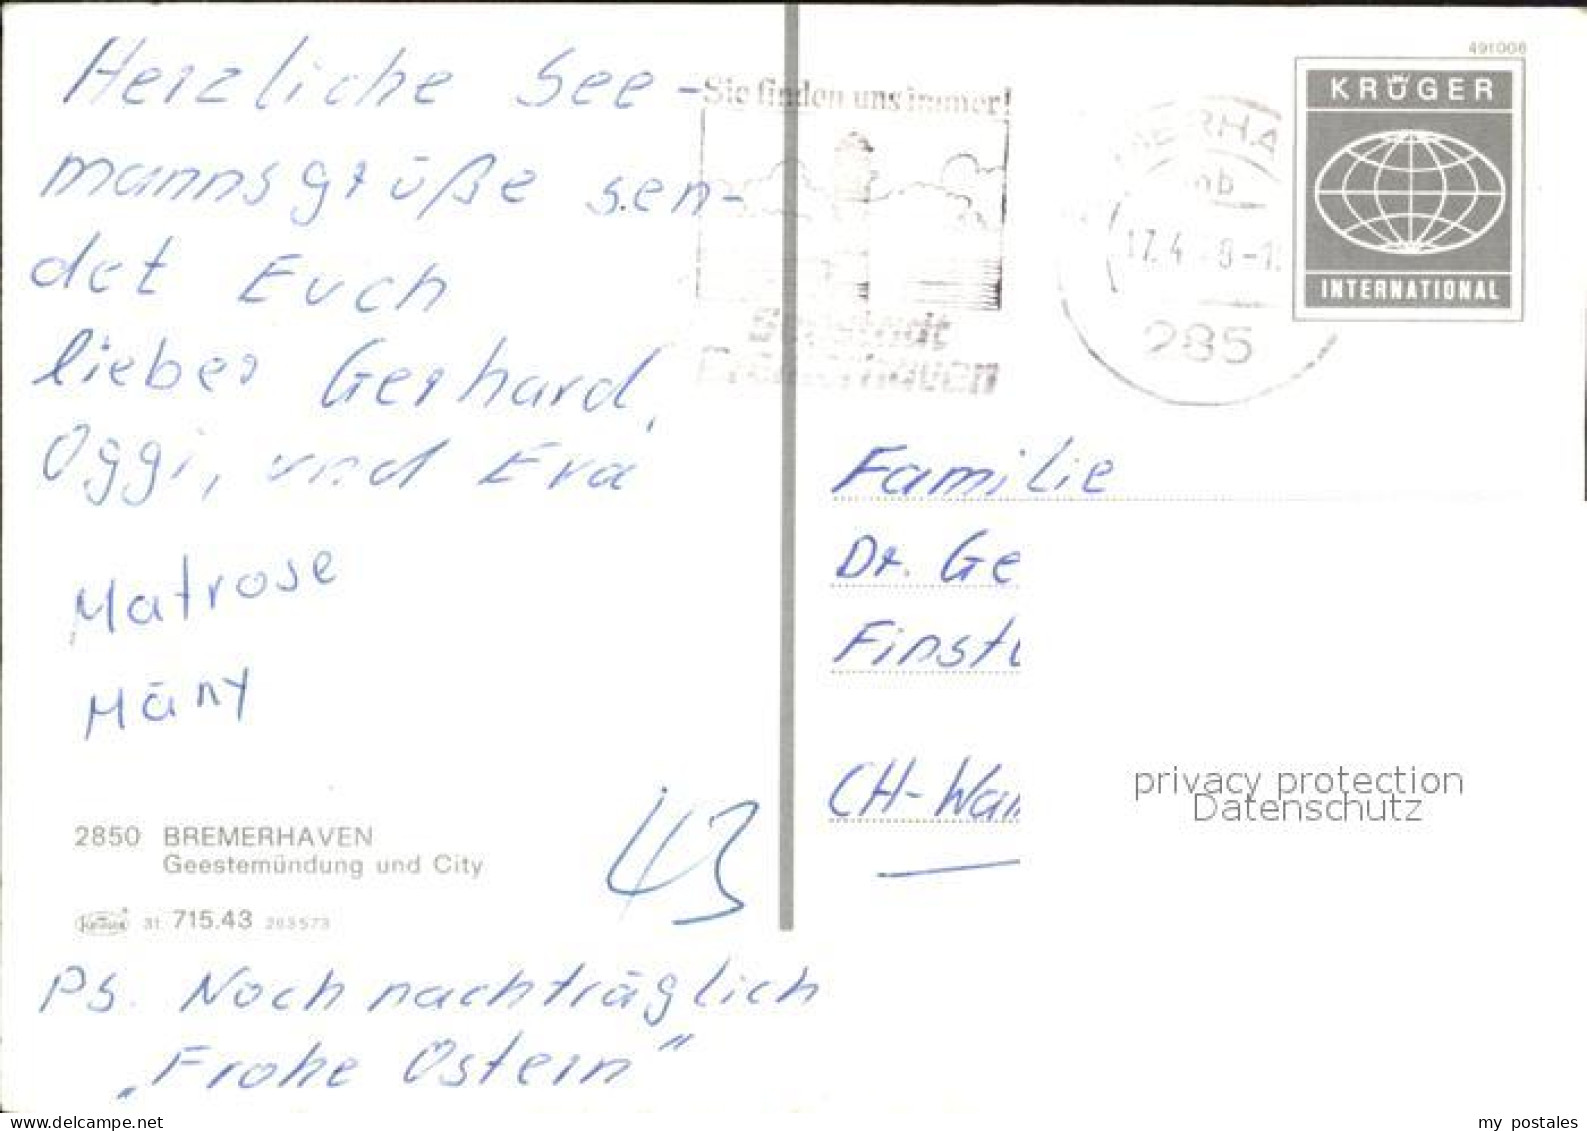 Herzliche See-
mannsgrüße sen-
det Euch
lieber Gerhard,
Oggi, und Eva
Matrose
Mäny
2850 BREMERHAVEN
Geestemündung und City
Krüger 3t 715.43 263573
43
PS. Noch nachträglich
„Frohe Ostern"
Sie finden uns immer!
Seestadt
Bremerhaven
285
491008
KRÜGER
INTERNATIONAL
Familie
Dr. Ge
Finst
CH-Wa
privacy protection
Datenschutz
my postales